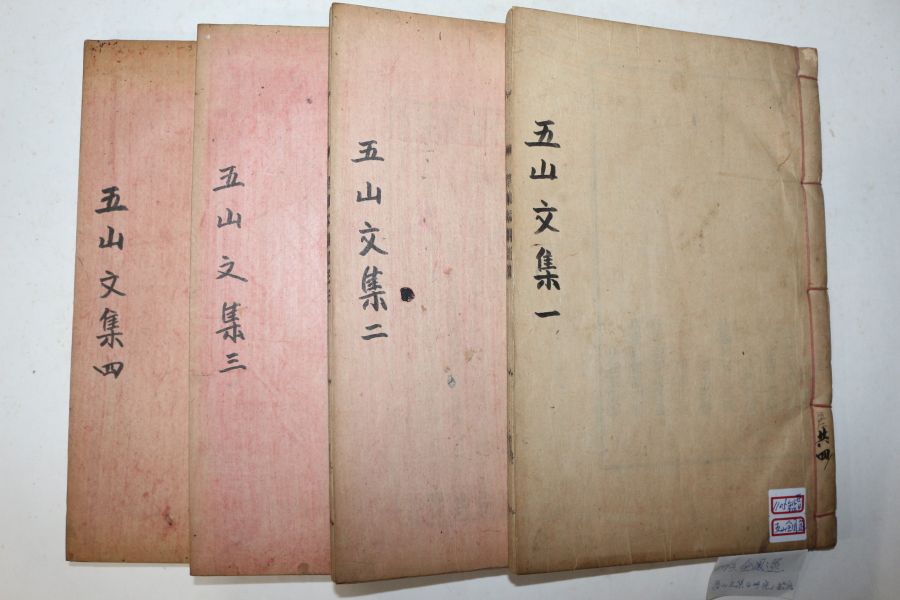 五山文集一
五山文集二
五山文集三
五山文集四
共四